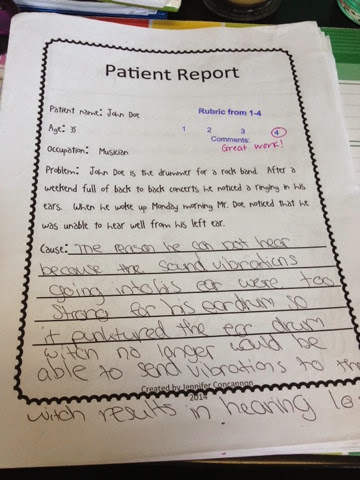 Patient Report
Patient name: John Doe
Rubric from 1-4
Age: 35
1 2 3 4
Comments:
Great work!
Occupation: Musician
Problem: John Doe is the drummer for a rock band. After a
weekend full of back to back concerts he noticed a ringing in his
ears. When he woke up Monday morning Mr. Doe noticed that he
was unable to hear well from his left ear.
Cause: The reason he can not hear
because the sound vibrations
going into his ear were too
strong for his eardrum so
it punktured the ear drum
witch no longer would be
able to send vibrations to
Created by Jennifer Concannon
2014
witch results in hearing